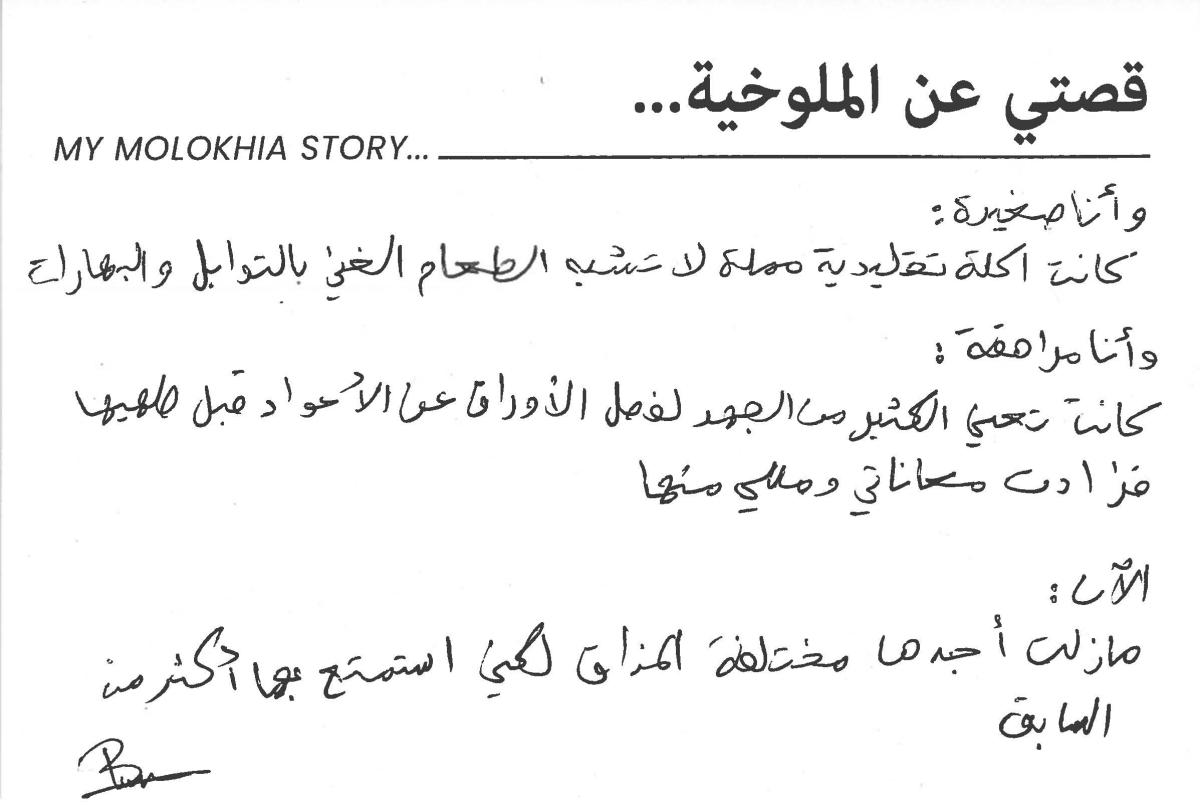 قصتي عن الملوخية...
MY MOLOKHIA STORY...
وأنا صغيرة:
كانت اكلة تقليدية مملة لا تشبه الطعام الغني بالتوابل والبهارات
وأنا مراهقة:
كانت تعني الكثير من الجهد لفصل الأوراق عن الأعواد قبل طهيها
فزادت معاناتي ومللي منها
الآن:
مازلت أجدها مختلفة المذاق لكني استمتع بها أكثر من
السابق